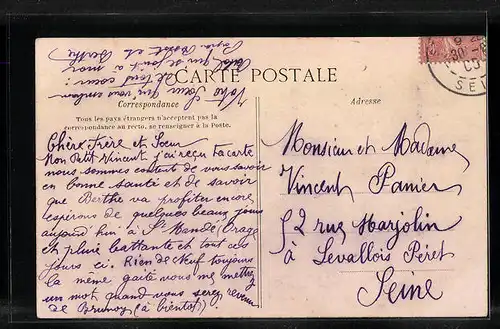 CARTE POSTALE
Correspondance
Tous les pays étrangers n'acceptent pas la
correspondance au recto, se renseigner à la Poste.
Chère Frère et Sœur
Mon Petit Vincent j'ai reçu ta carte
nous sommes contents de vous savoir
en bonne santé et de savoir
que Berthe va profiter encore
espérons de quelques beaux jours
aujourd'hui à St Mandé Orage
et pluie battante et tout ces
jours ci. Rien de neuf toujours
la même gaité vous me mettrez
un mot quand vous serez revenu
de Brunoy (à bientôt)
Votre Sœur qui vous embrasse
de tout cœur
qui se joint à moi
Papa et Berthe
Adresse
Monsieur et Madame
Vincent Panier
52 rue Marjolin
à Levallois Péret
Seine
30
SEI